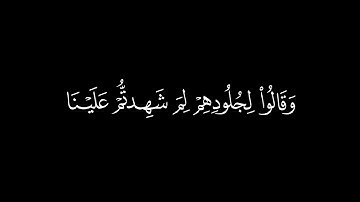 وَقَالُوا۟ لِجُلُودِهِمْ لِمَ شَهِدتُّمْ عَلَيْنَا